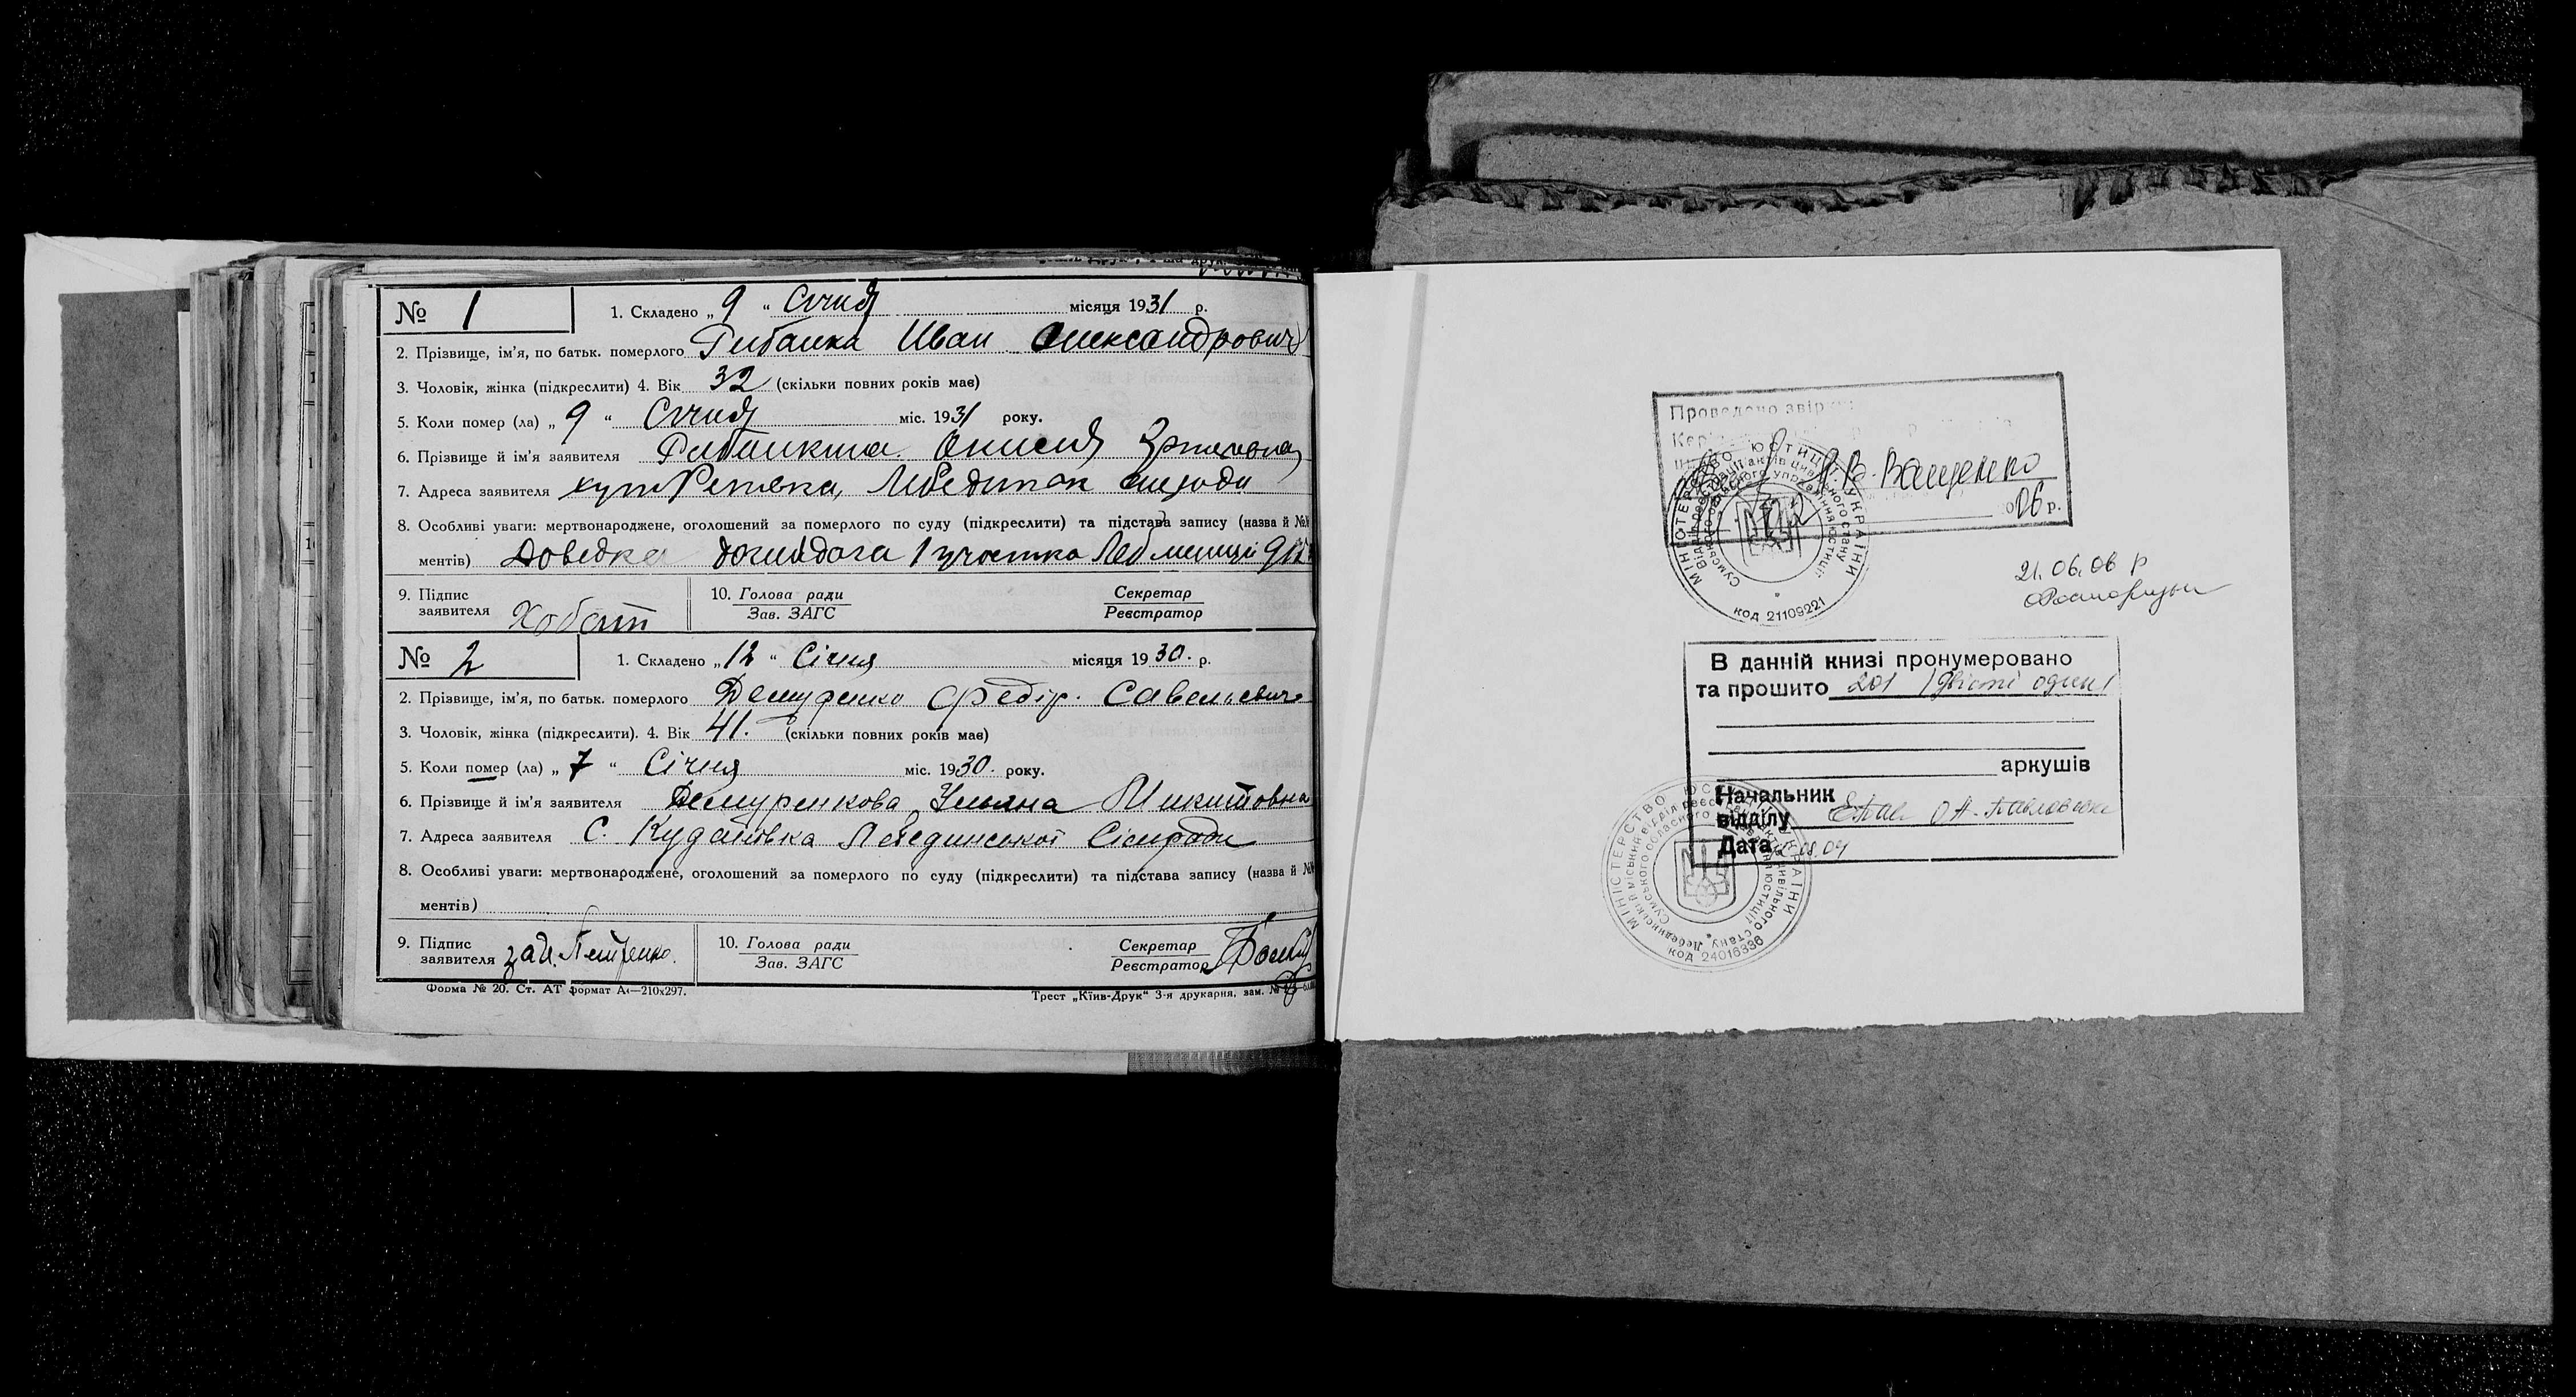 № 1
1. Складено „ 9 “ Січня місяця 1931 р.
2. Прізвище, ім'я, по батьк. померлого Рибалка Иван Олександрович
3. Чоловік, жінка (підкреслити) 4. Вік 32 (скільки повних років має)
5. Коли помер (ла) „ 9 “ Січня міс. 1931 року.
6. Прізвище й ім'я заявителя
7. Адреса заявителя хут
8. Особливі уваги: мертвонароджене, оголошений за померлого по суду (підкреслити) та підстава запису (назва й №№
ментів) Доведка 1 участка Леб
9. Підпис заявителя
10. Голова ради
Зав. ЗАГС
Секретар
Реєстратор
№ 2
1. Складено „ 12 “ Січня місяця 1930. р.
2. Прізвище, ім'я, по батьк. померлого Демуренко Федір. Савельевич
3. Чоловік, жінка (підкреслити). 4. Вік 41. (скільки повних років має)
5. Коли помер (ла) „ 7 “ Січня міс. 1930. року.
6. Прізвище й ім'я заявителя Демуренкова Ульяна Микитовна
7. Адреса заявителя С. Кудановка Лебединської Сільради
8. Особливі уваги: мертвонароджене, оголошений за померлого по суду (підкреслити) та підстава запису (назва й №
ментів)
9. Підпис заявителя
10. Голова ради
Зав. ЗАГС
Секретар
Реєстратор
Форма № 20. Ст. АТ формат А4—210х297.
Трест „Київ-Друк“ 3-я друкарня, зам. №
Проведено звір
В. Ващенко
06 р.
МІНІСТЕРСТВО ЮСТИЦІЇ УКРАЇНИ
код 21109221
21.06.06 р
В данній книзі пронумеровано
та прошито 201 (двісті один)
аркушів
Начальник
відділу О.А. Павловська
Дата .08.04
МІНІСТЕРСТВО ЮСТИЦІЇ УКРАЇНИ
код 24016336